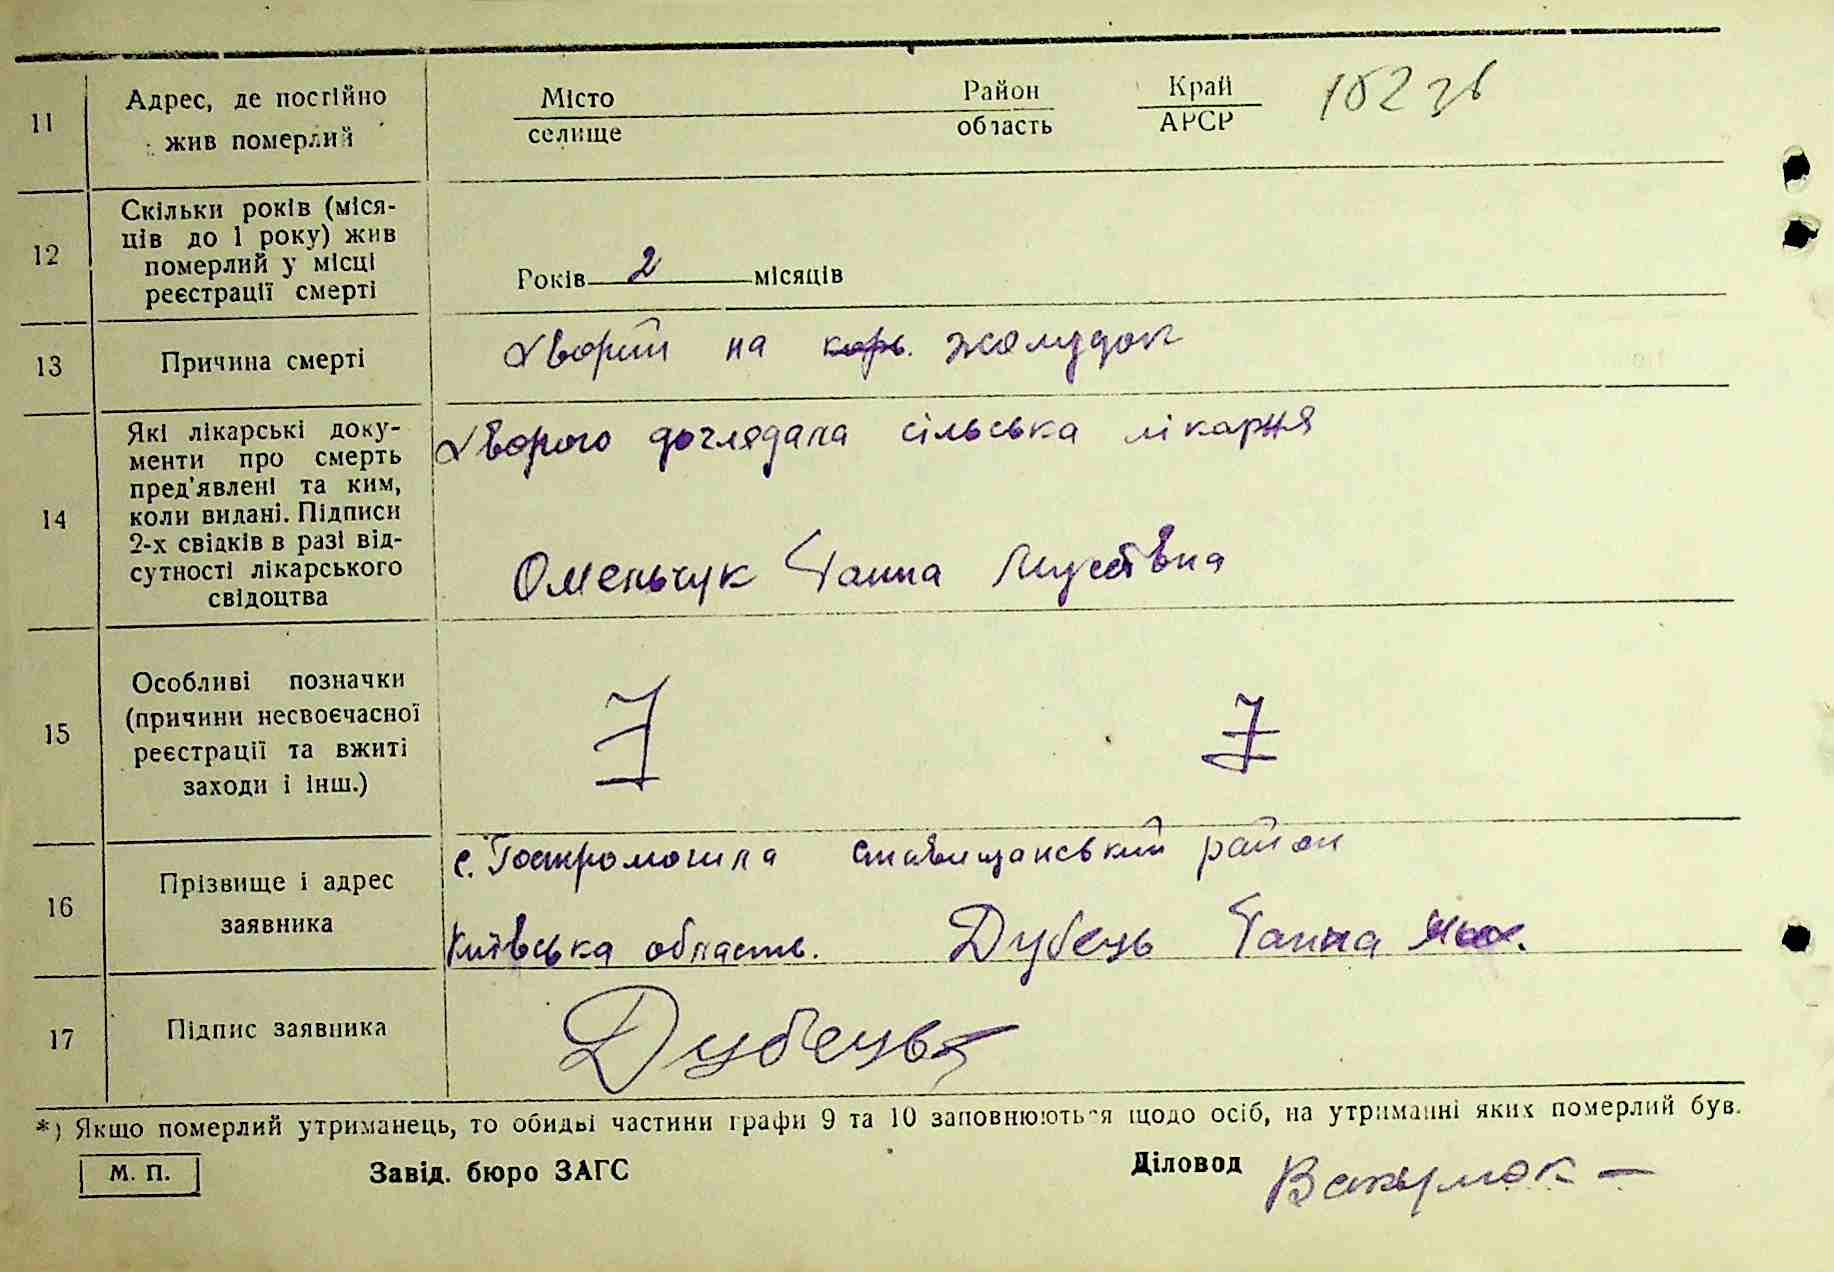 102 зв
11 Адрес, де постійно жив померлий
Місто селище Район область Край АРСР
12 Скільки років (міся-
ців до 1 року) жив
померлий у місці
реєстрації смерті
Років 2 місяців
13 Причина смерті
хворий на корь. жолудок
14 Які лікарські доку-
менти про смерть
пред'явлені та ким,
коли видані. Підписи
2-х свідків в разі від-
сутності лікарського
свідоцтва
хворого доглядала сільська лікарня
Оменьчук Ганна
15 Особливі позначки
(причини несвоєчасної
реєстрації та вжиті
заходи і інш.)
Z Z
16 Прізвище і адрес
заявника
с. Гостромогила ставищанський район
Київська область. Дубець Ганна
17 Підпис заявника
Дубець
*) Якщо померлий утриманець, то обидві частини графи 9 та 10 заповнюються щодо осіб, на утриманні яких померлий був.
М. П. Завід. бюро ЗАГС Діловод